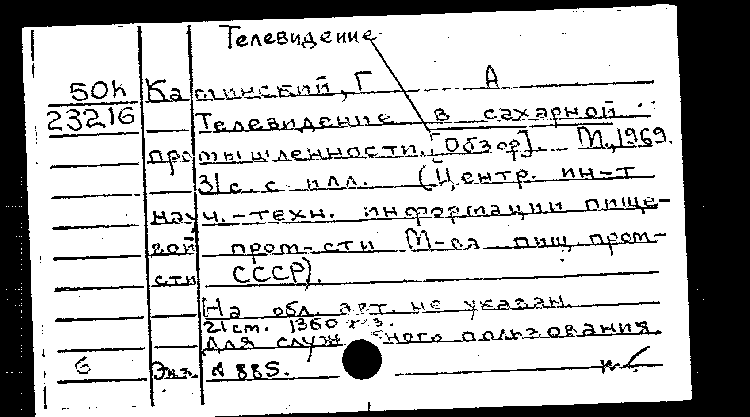 Телевидение
50h Катинский, Г А
23216 Телевидение в сахарной
промышленности. [Обзор]. М., 1969.
31с. с илл. (Центр. ин-т
науч.-техн. информации пище-
вой пром-сти М-ва пищ. пром-
сти СССР).
На обл. авт. не указан.
21 cm. 1360 экз.
Для служебного пользования.
6 Экз. № 885.